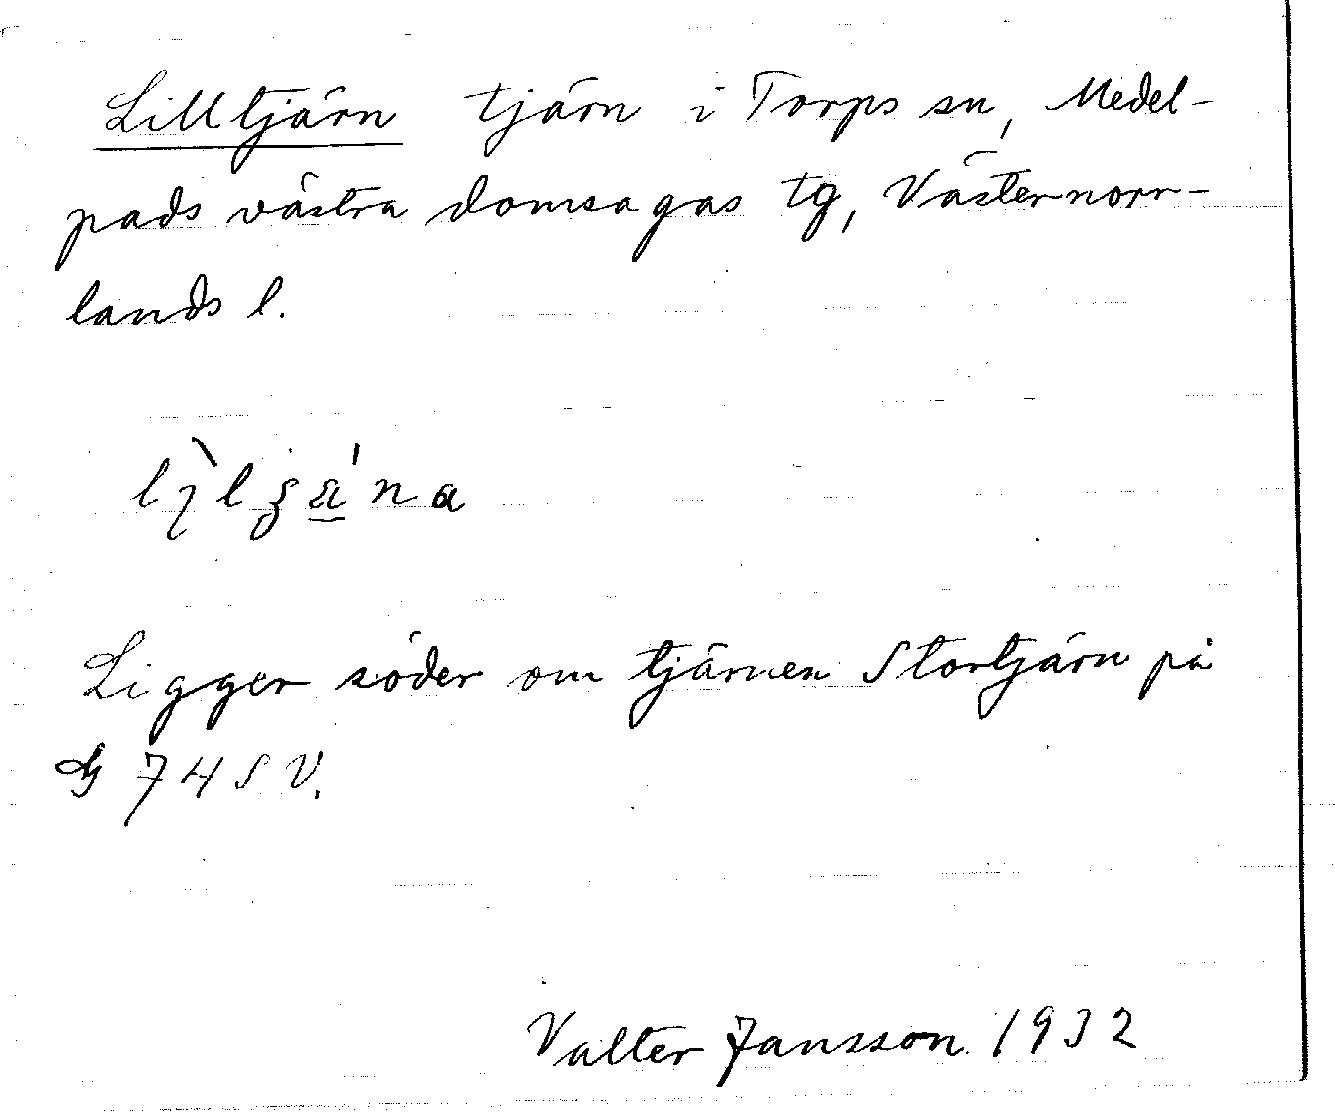 Lilltjärn tjärn i Torps sn, Medel-
pads västra domsagas tg, Västernorr-
lands l.
Ligger söder om tjärnen Stortjärn på
74 SV.
Valter Jansson 1932